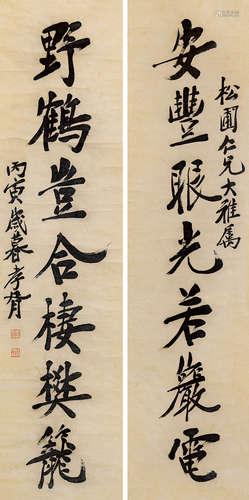 松圃仁兄大雅属
安豐眼光若巖電
野鶴豈合棲樊籠
丙寅歲暮孝胥